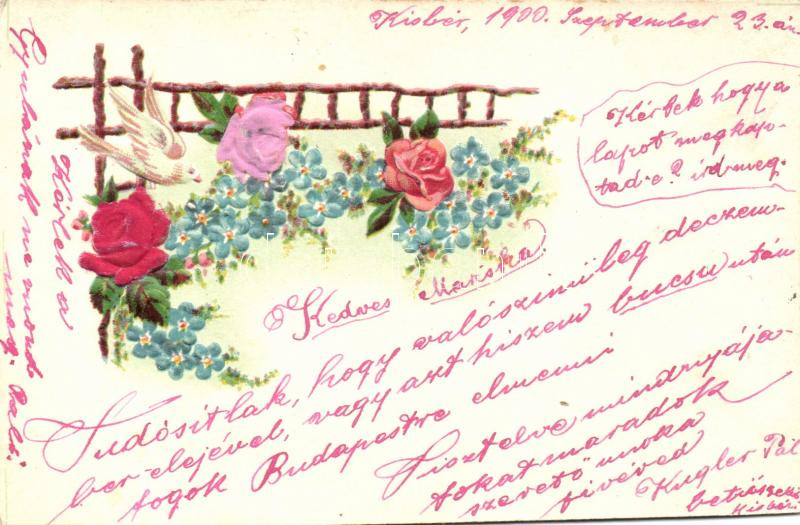 Kisbér, 1900. Szeptember 23.án
Kérlek hogy a
lapot megkap-
tad-e? ird meg.
Kedves Mariska!
Tudósitlak, hogy valószinüleg deczem-
ber elejével, vagy azt hiszem bucsu után
fogok Budapestre elmenni
Tisztelve mindnyája-
tokat maradok
szerető unoka
fivéred
Kugler Pál
Kisbér
Kérlek a
Gyulának ne mond
meg. Pali